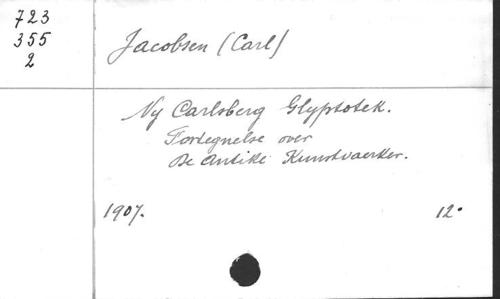 723
355
2
Jacobsen (Carl)
Ny Carlsberg Glyptotek.
Fortegnelse over
De Antike Kunstvaerker.
1907.
12°